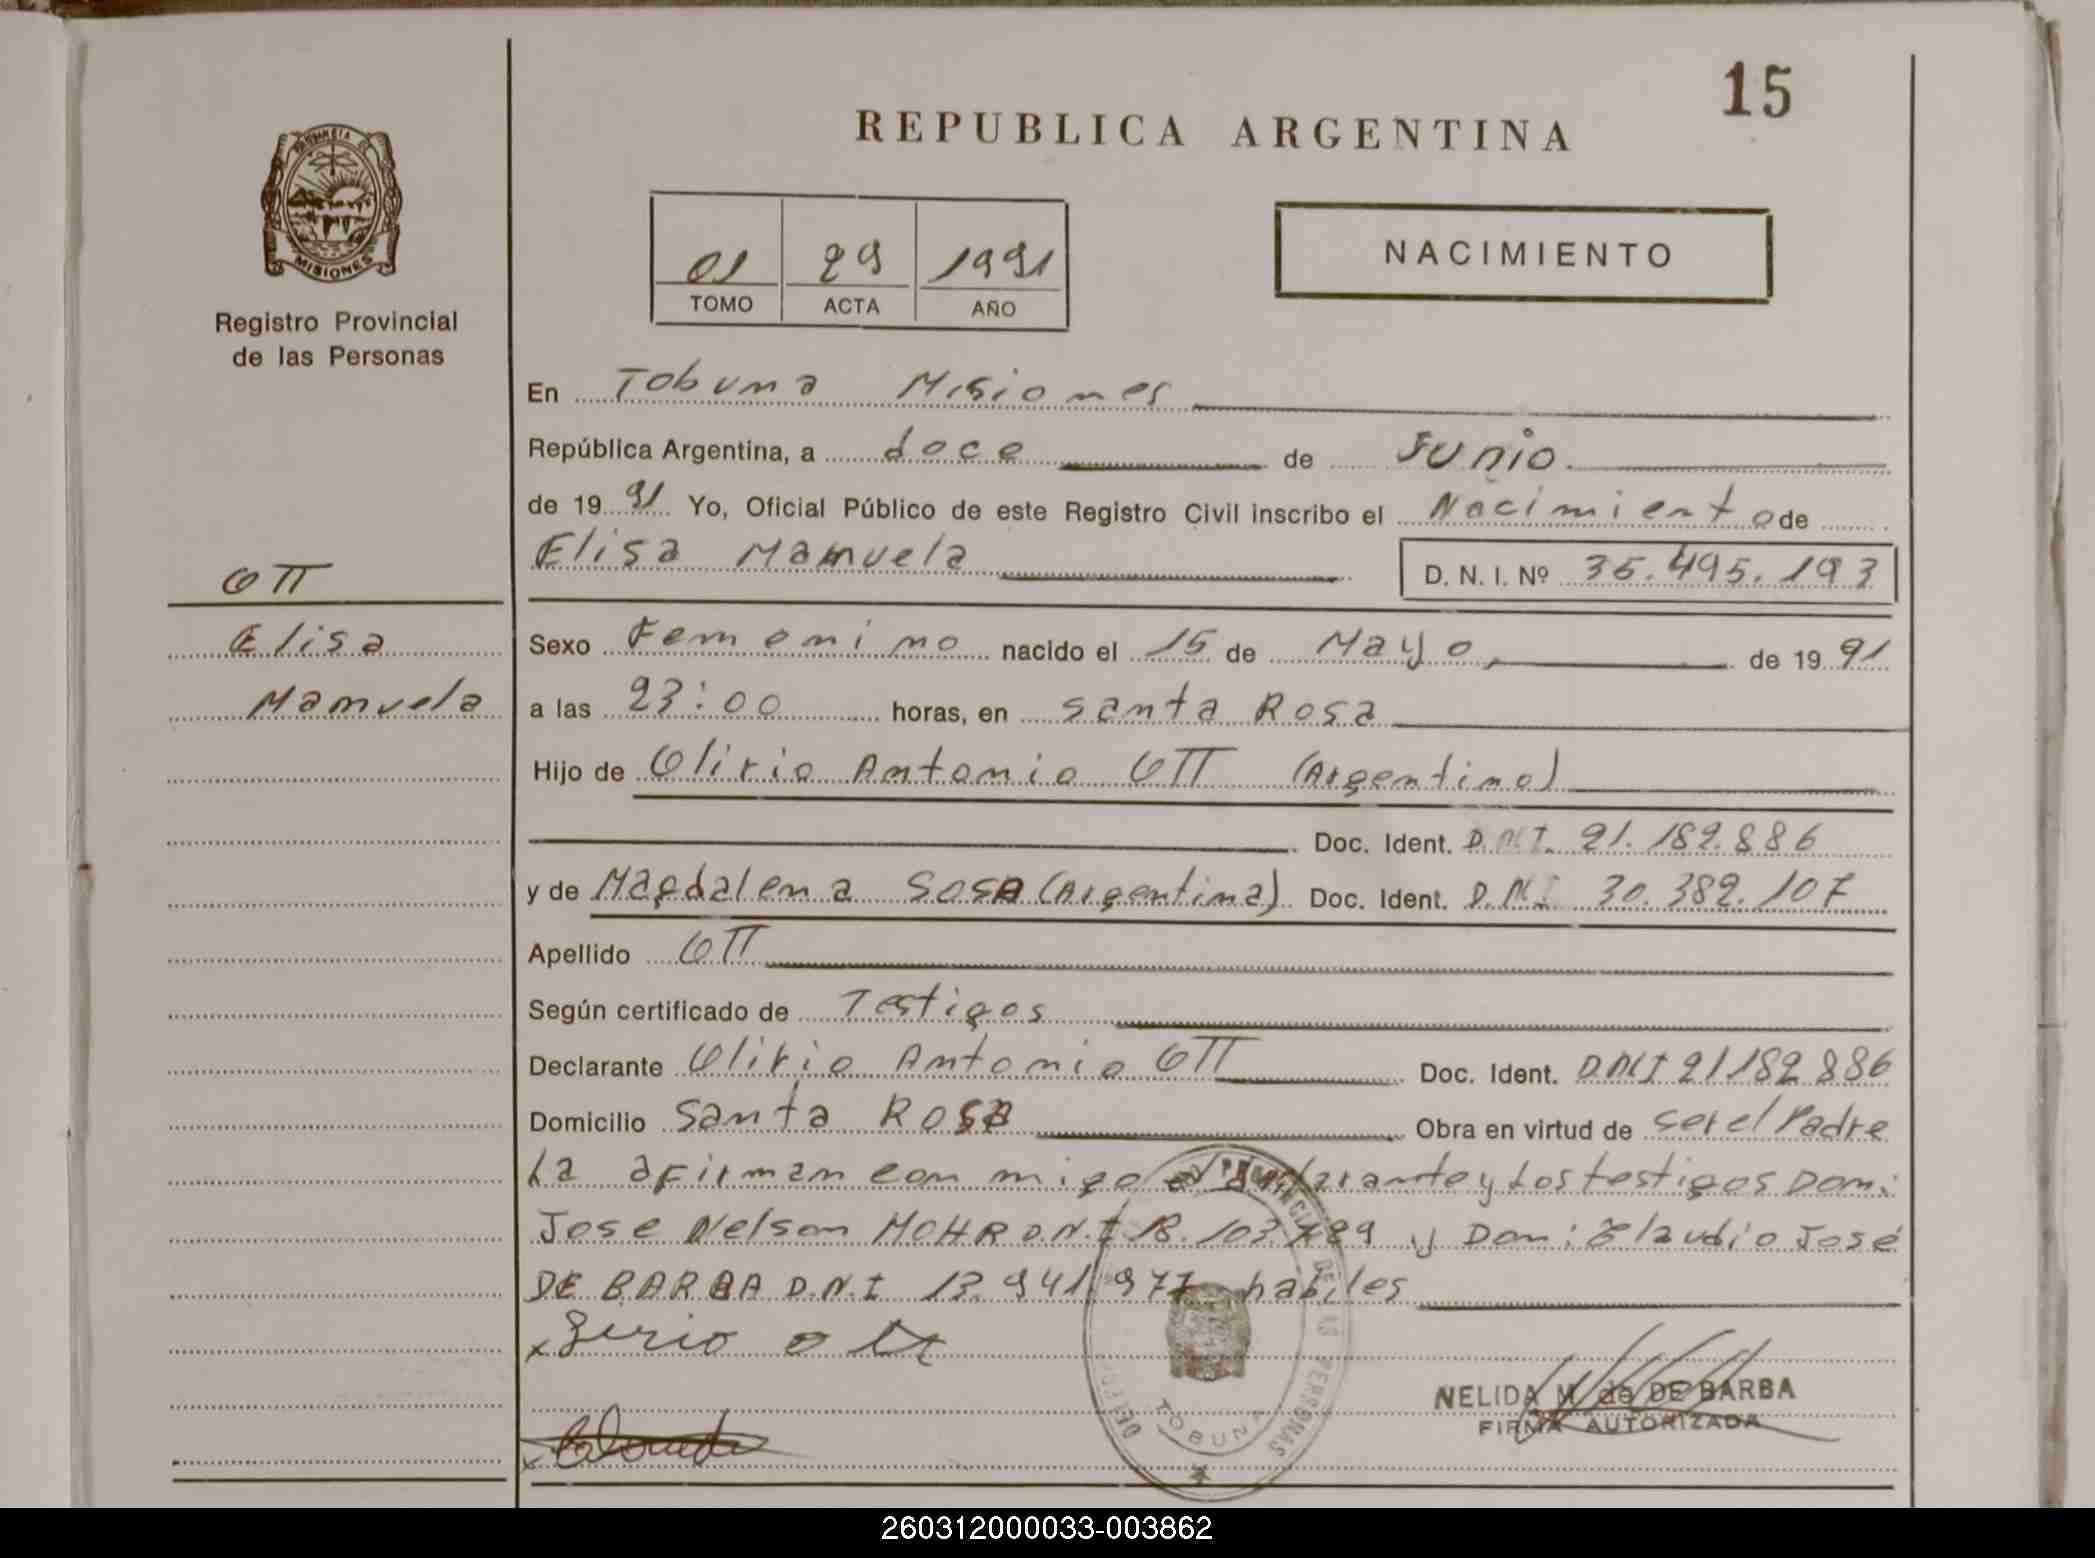 15
REPUBLICA ARGENTINA
PROVINCIA DE
MISIONES
Registro Provincial
de las Personas
01 29 1991
TOMO ACTA AÑO
NACIMIENTO
En Tobuna Misiones
República Argentina, a doce de Junio.
de 19 91 Yo, Oficial Público de este Registro Civil inscribo el Nacimiento de
Elisa Manuela D. N. I. Nº 36.495.193
OTT
Elisa
Manuela
Sexo Femenino nacido el 15 de Mayo, de 19 91
a las 23:00 horas, en Santa Rosa
Hijo de Olirio Antonio OTT (Argentino)
Doc. Ident. D.N.I. 21.182.886
y de Magdalena Sosa (Argentina) Doc. Ident. D.N.I 30.382.107
Apellido OTT
Según certificado de Testigos
Declarante Olirio Antonio OTT Doc. Ident. D.N.I 21182886
Domicilio Santa Rosa Obra en virtud de ser el Padre
La afirman con migo el declarante y Los testigos Don:
Jose Nelson MOHR D.N.I 18.103.789 y Don: Claudio José
DE BARBA D.N.I 13.941.977 habiles
NELIDA M. de DE BARBA
FIRMA AUTORIZADA
TOBUNA
260312000033-003862